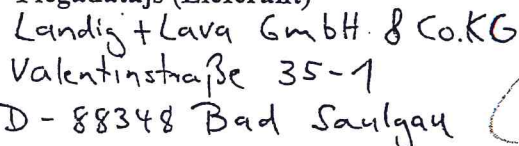 Landig + Lava GmbH & Co.KG
Valentinstraße 35-1
D - 88348 Bad Saulgau